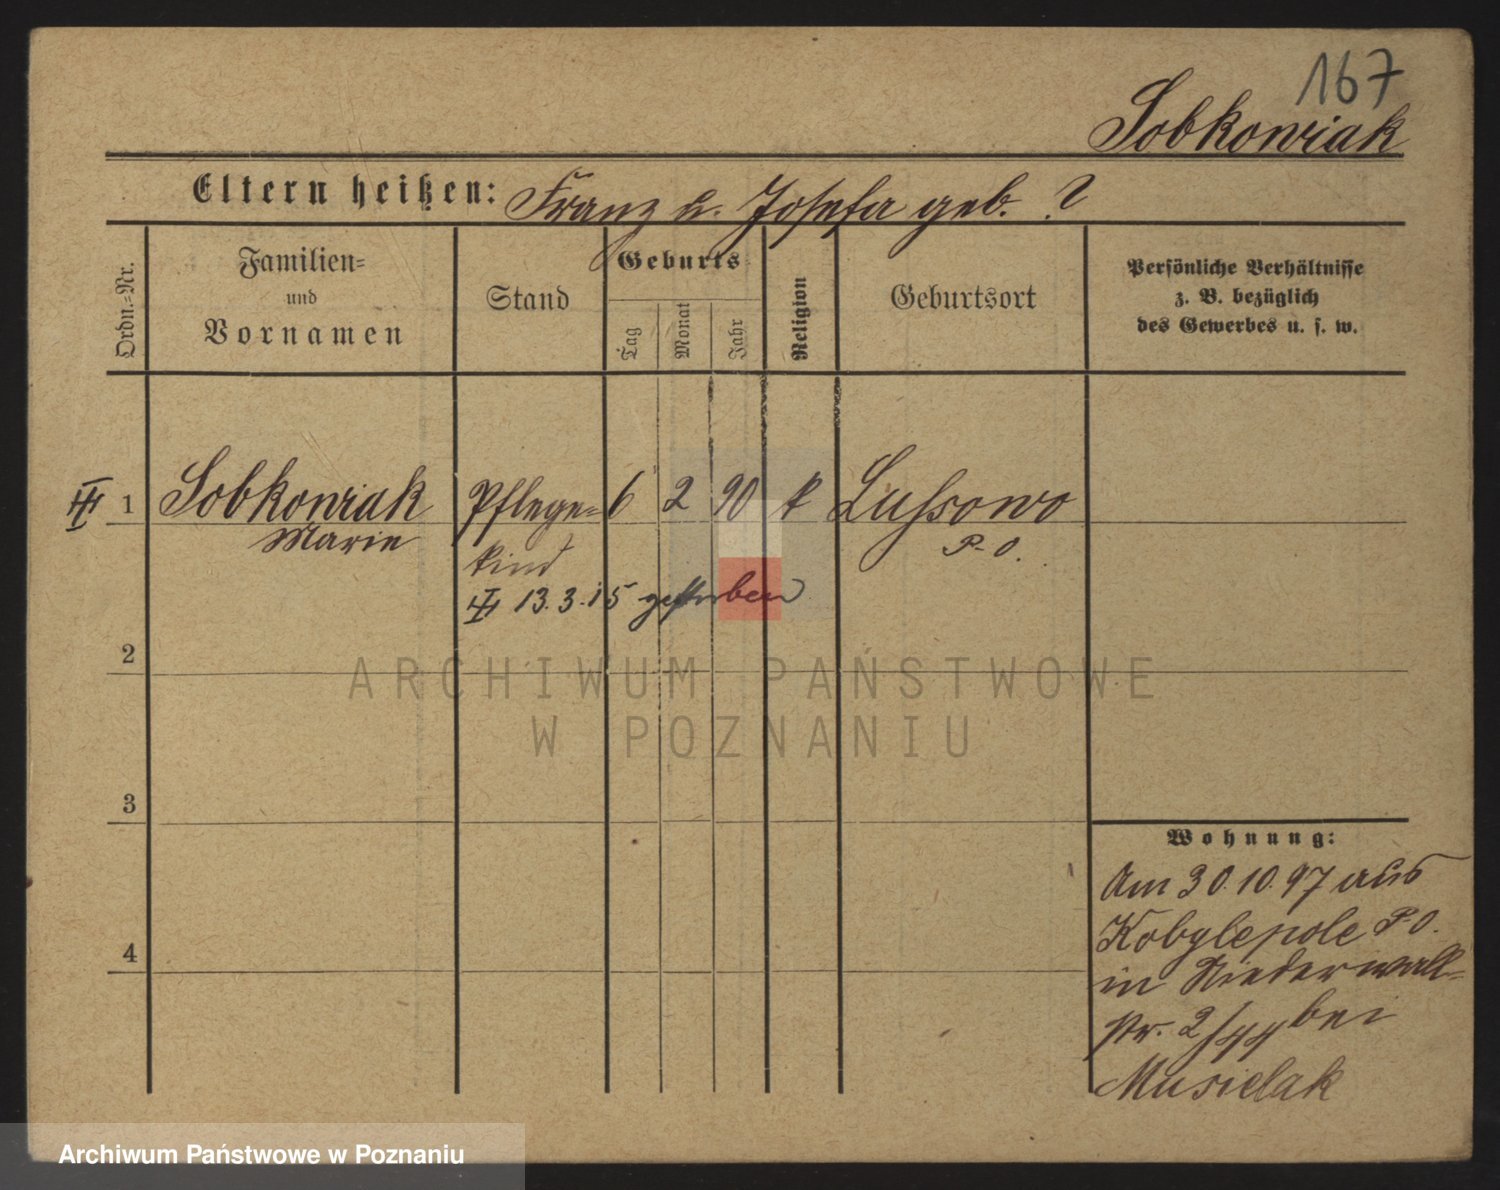 167
Sobkowiak
Eltern heißen: Franz u. Josefa geb. ?
Ordn.=Nr.
Familien=
und
Vornamen
Stand
Geburts
Tag
Monat
Jahr
Religion
Geburtsort
Persönliche Verhältnisse
z. B. bezüglich
des Gewerbes u. s. w.
1 Sobkowiak Pflege= 6 2 90 k Lussowo
Marie kind P-O.
13.3.15 gestorben
2
ARCHIWUM PAŃSTWOWE
W POZNANIU
3
Wohnung:
Am 30.10.97 aus
Kobylepole P-O.
in Niederwall=
str. 2/44 bei
Musielak
4
Archiwum Państwowe w Poznaniu